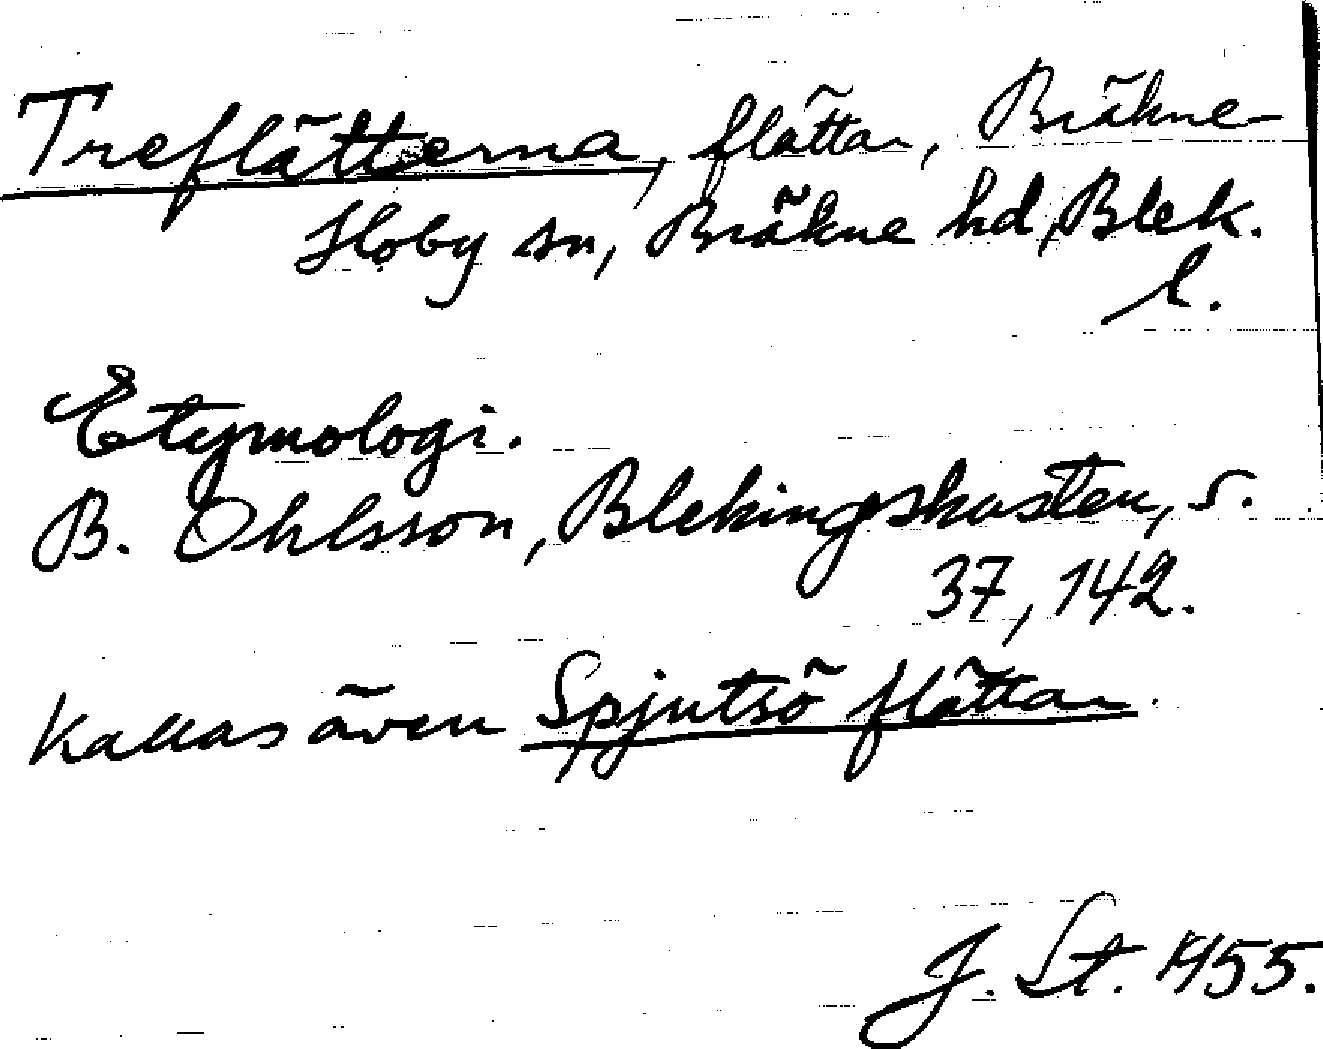 Treflätterna, flättar, Bräkne-
Hoby sn, Bräkne hd, Blek.
l.
Etymologi.
B. Ohlsson, Blekingskusten, s.
37, 142.
Kallas även Spjutsö flättar.
J. St. 1955.